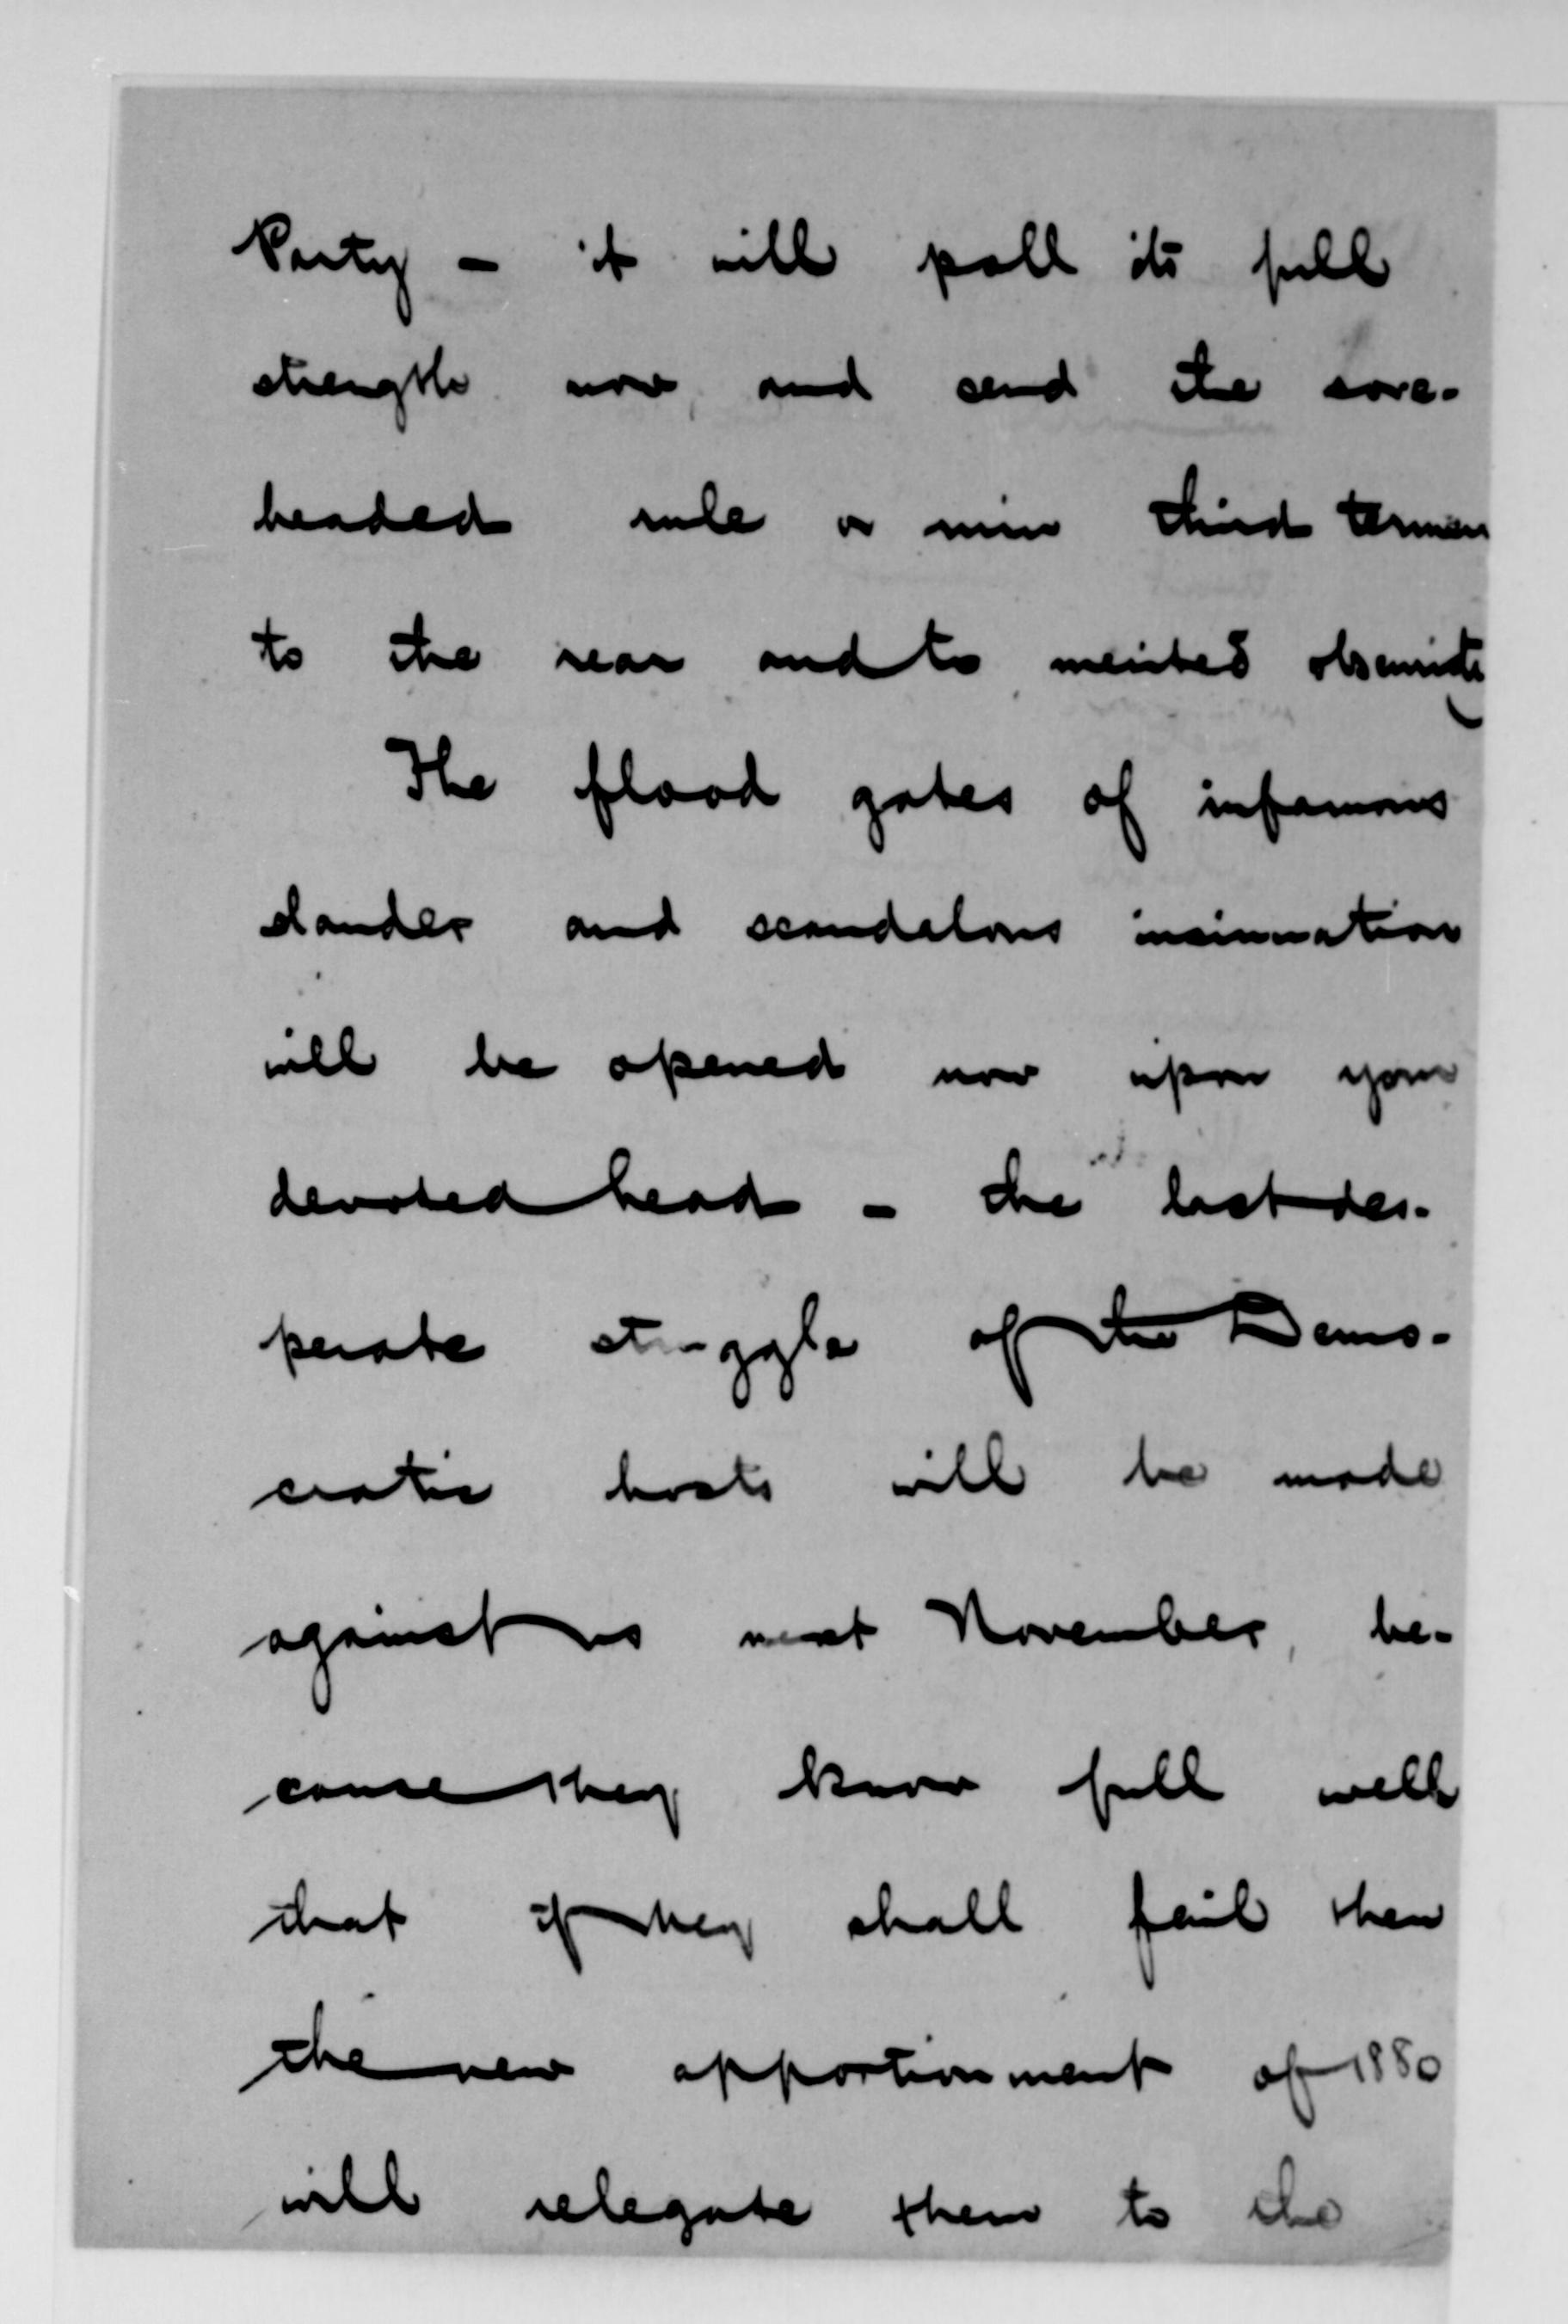 Party – it will poll its full
strength now, and send the sore-
headed rule or ruin third termers
to the rear and to merited obscurity
The flood gates of infamous
slander and scandalous insinuation
will be opened now upon your
devoted head – the last des-
perate struggle of the Demo-
cratic hosts will be made
against us next November, be-
cause they know full well
that if they shall fail then
the new apportionment of 1880
will relegate them to the